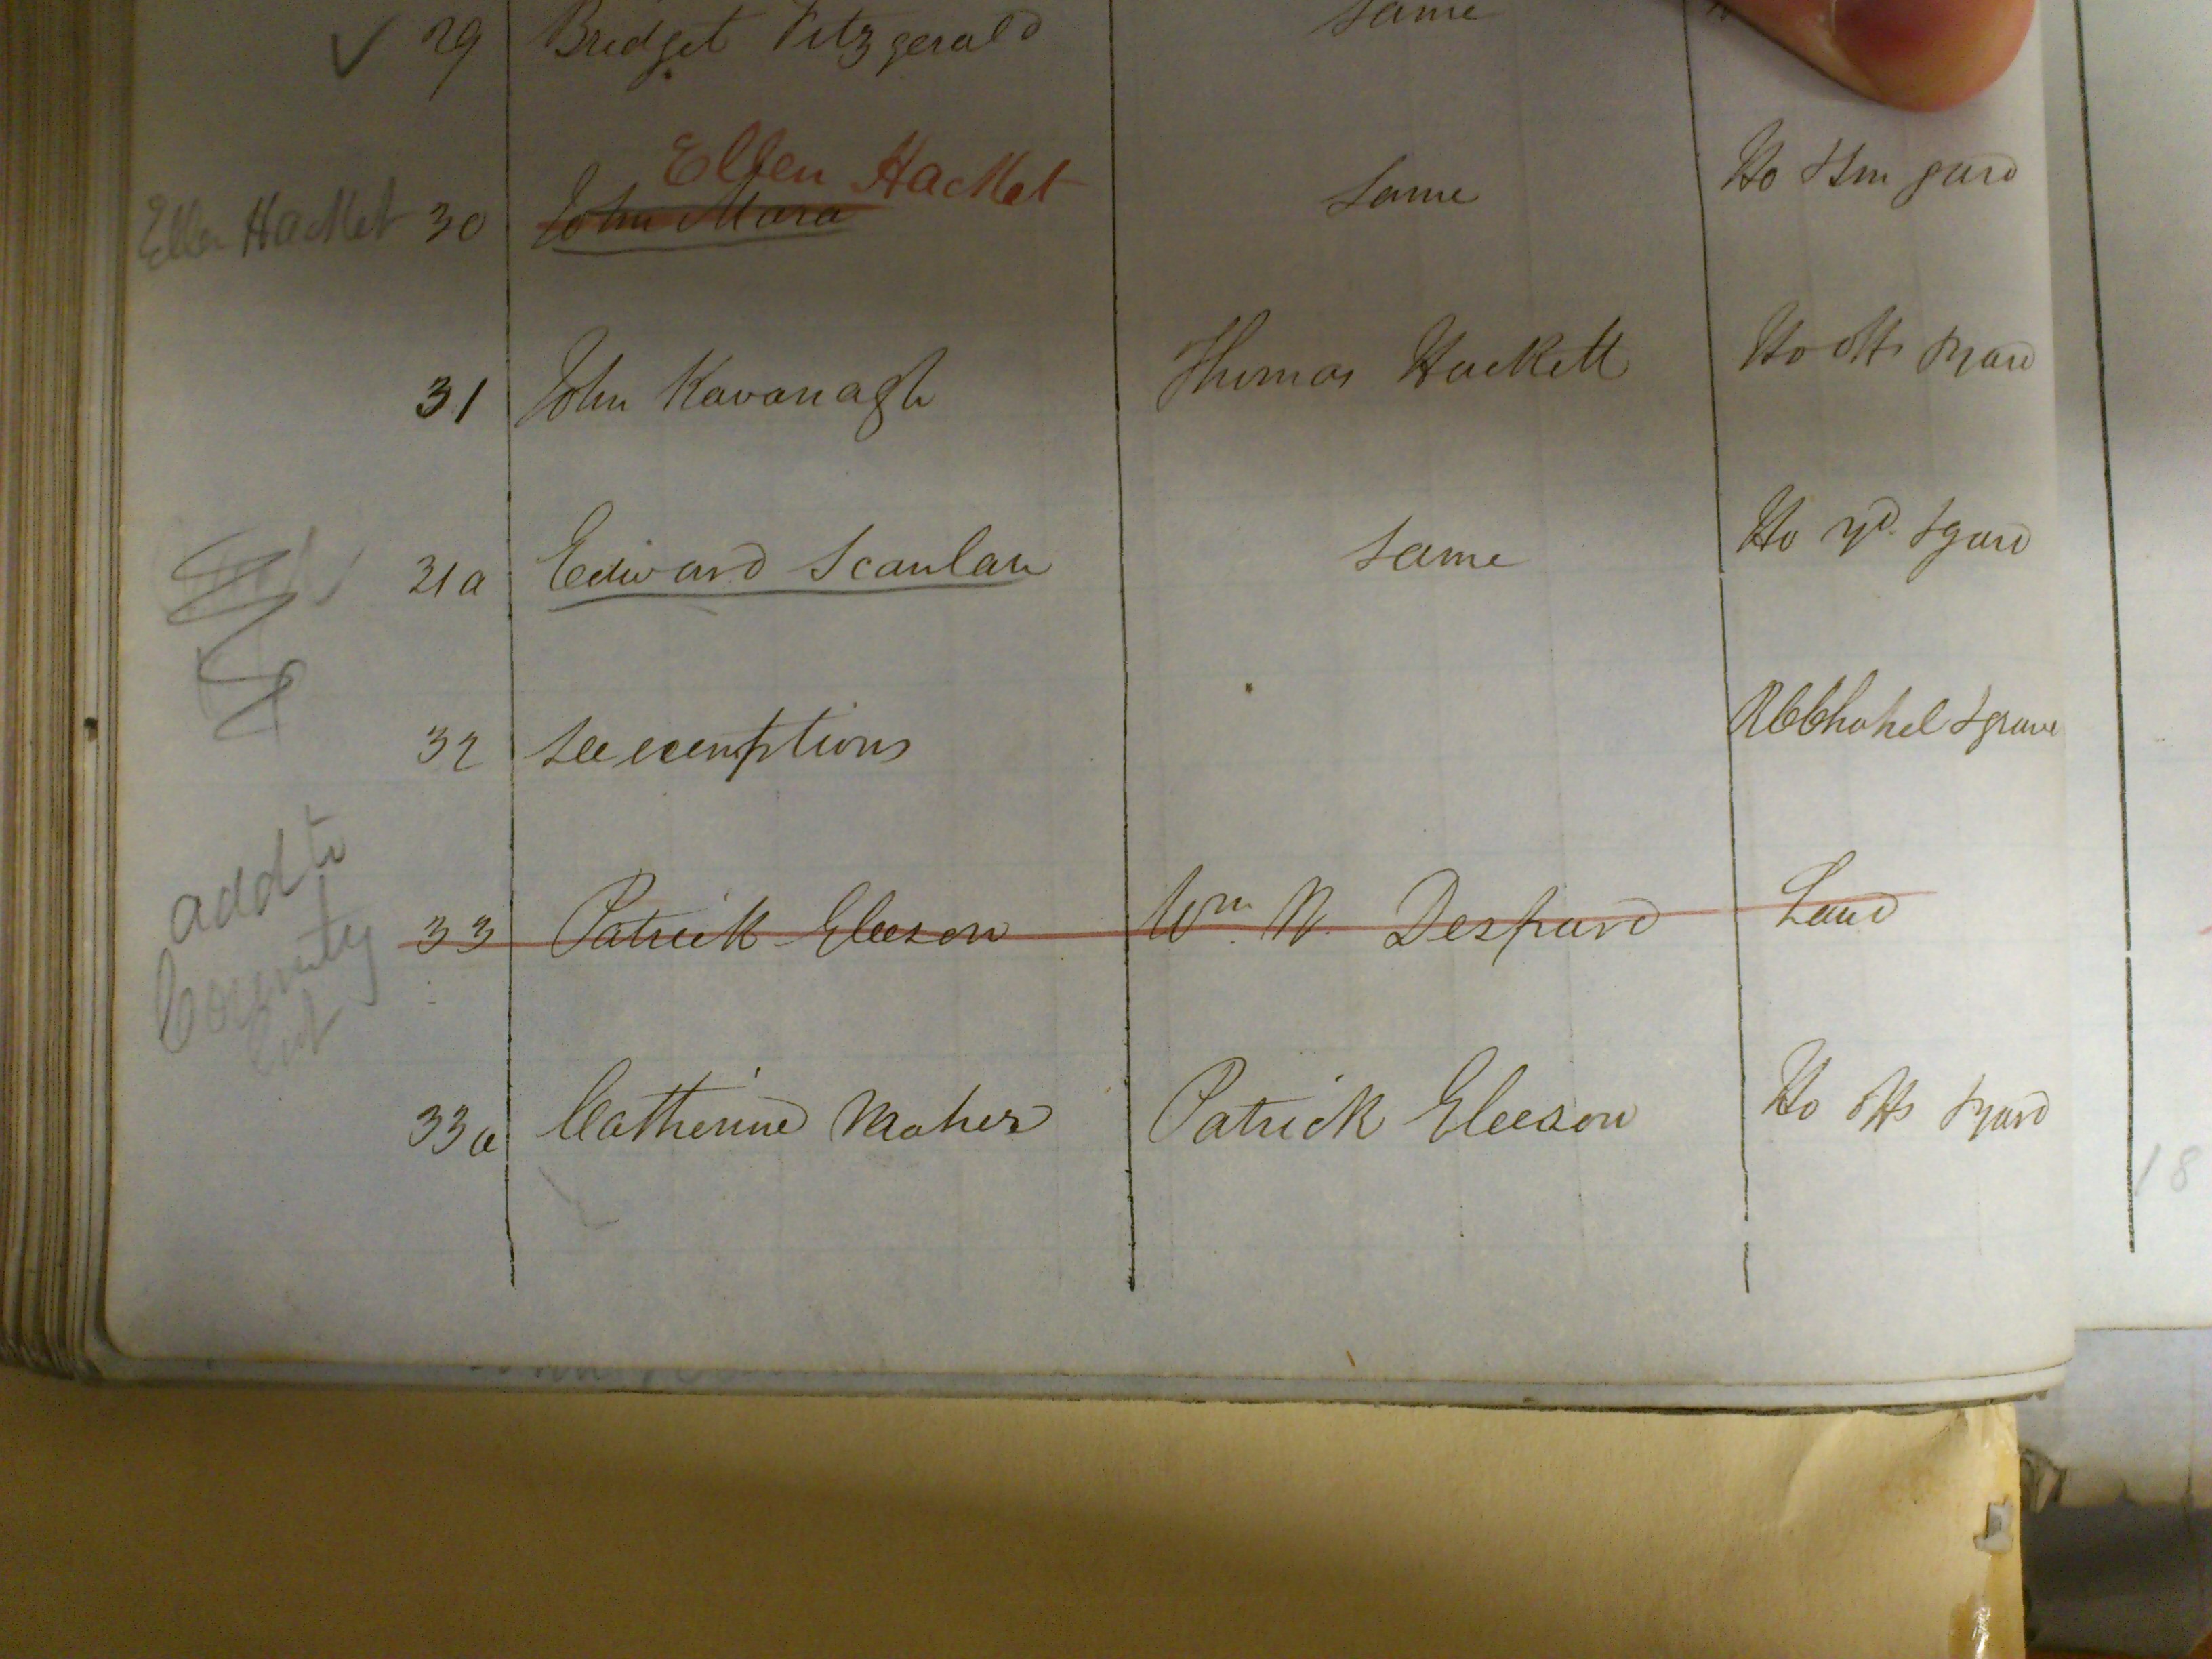 29 Bridget Fitzgerald same
Ellen Hacket
Ellen Hacket 30 John Mara same Ho & Sm gard
31 John Kavanagh Thomas Hackett Ho offs & yard
31a Edward Scanlan same Ho yd. & gard
32 see exemptions R C Chapel & grave
add to
33 Patrick Gleeson Wm. W. Despard Land
33a Catherine Maher Patrick Gleeson Ho offs & yard
18